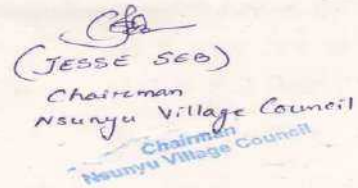 (JESSE SEB)
Chairman
Nsunyu Village Council
Chairman
Nsunyu Village Council